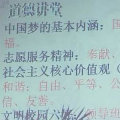 道德讲堂
中国梦的基本内涵：国
志愿服务精神：奉献、
社会主义核心价值观（
和谐；自由、平等、公
信、友善
文明校园六